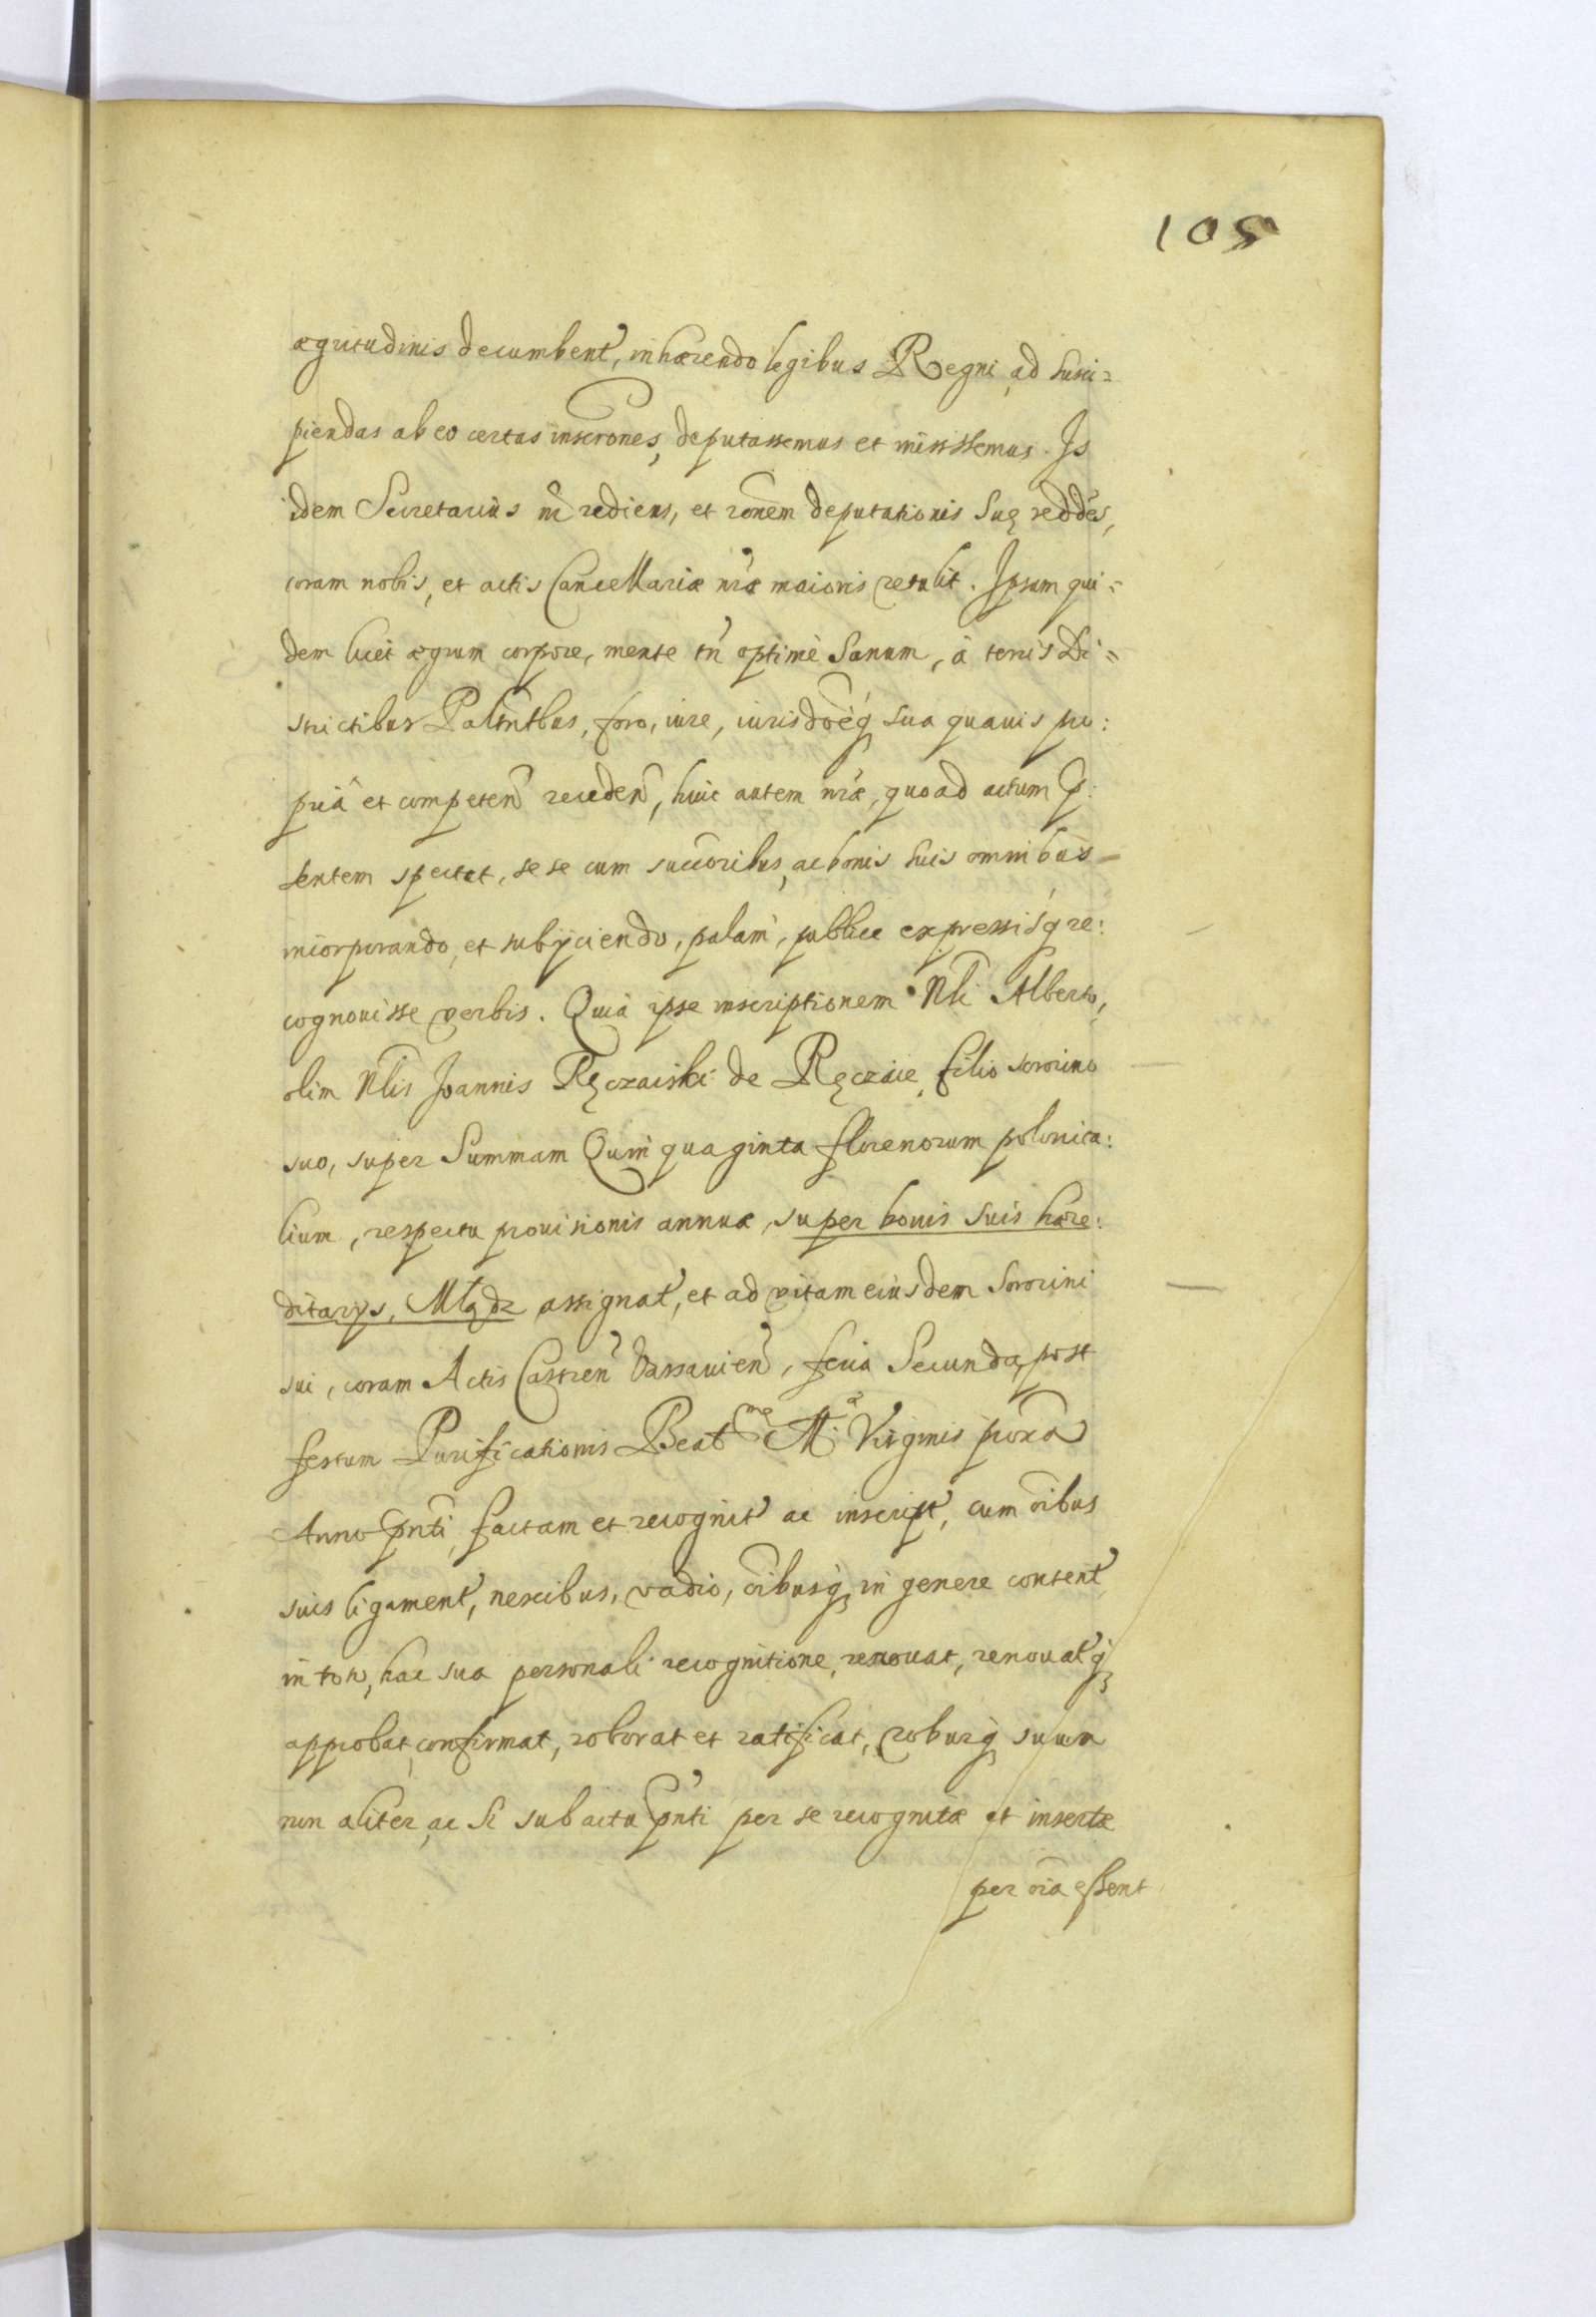 105
ægritudinis decumbent, inhærendo legibus Regni, ad susci=
piendas ab eo certas inscrones, deputassemus et misissemus. Is
idem Secretarius nr̃ rediens, et ronem deputationis suę reddẽs,
coram nobis, et actis Cancellariæ nr̃æ maioris retulit. Ipsum qui=
dem licet ægrum corpore, mente tñ optimè sanum, à terris Di=
strictibus Paltntbus, foro, iure, iurisdoẽq sua quauis pro:
priâ et competeñ recedeñ, huic autem nr̃æ, quoad actum p:
sentem spectat, se se cum succoribus, ac bonis suis omnibus
incorporando, et subijciendo, palam, publice expressisq re:
cognouisse verbis. Quia ipse inscriptionem Nli Alberto,
olim Nlis Joannis Ręczaiski de Ręczaie, filio sororino
suo, super Summam Quinquaginta florenorum polonica:
lium, respectu prouisionis annuæ, super bonis suis hære:
ditarijs, Mlądz assignat, et ad vitam eiusdem Sororini
sui, coram Actis Castreñ Varsauieñ, feria Secunda, post
festum Purificationis Beatmæ M.æ Virginis proxa
Anno pñti, factam et recognit ac inscript, cum oĩbus
suis ligament, nexibus, vadio, oĩbusq in genere content
in toto, hac sua personali recognitione, renouat, renouatq
approbat, confirmat, roborat et ratificat, roburq suum
non aliter, ac si sub actu pñti per se recognitæ et insertæ
per oĩa essent